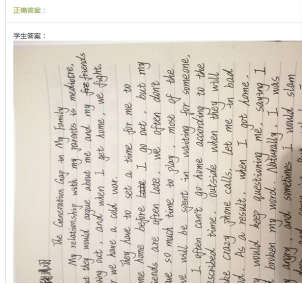 正确答案：
学生答案：
The Generation Gap in My family
My relationship with my parents is mediocre,
they would argue about me and my friends
out and when I get home, we fight
we have a cold war.
They have to set a time for me to
home before I go out but my
are often late. We often don't
so much time to play, most of the
will be spent in waiting for someone,
I often can't go home according to the
time. outside when they will
crazy phone calls, let me in bad
As a result when I got home,
would keep questioning me, saying I
broken my word. Naturally I was
angry and sometimes I would slam